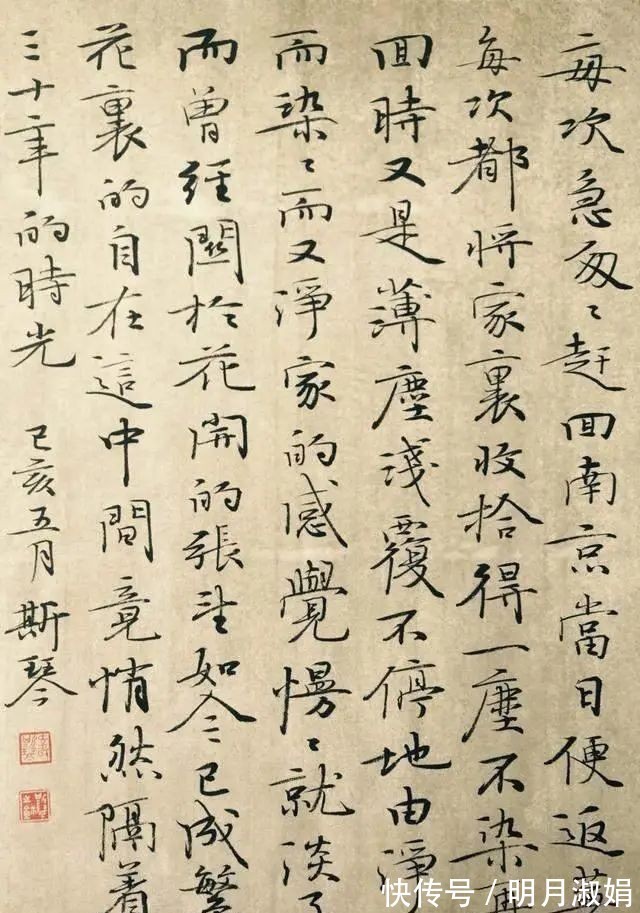 每次急匆〻赶回南京當日便返
每次都将家裏收拾得一塵不染再
回時又是薄塵淺覆不停地由淨
而染〻而又淨家的感覺慢〻就淡了
而曾經關於花開的張望如今已成繁
花裏的自在這中間竟悄然隔着
三十年的時光 己亥五月斯琴
快传号 / 明月淑娟